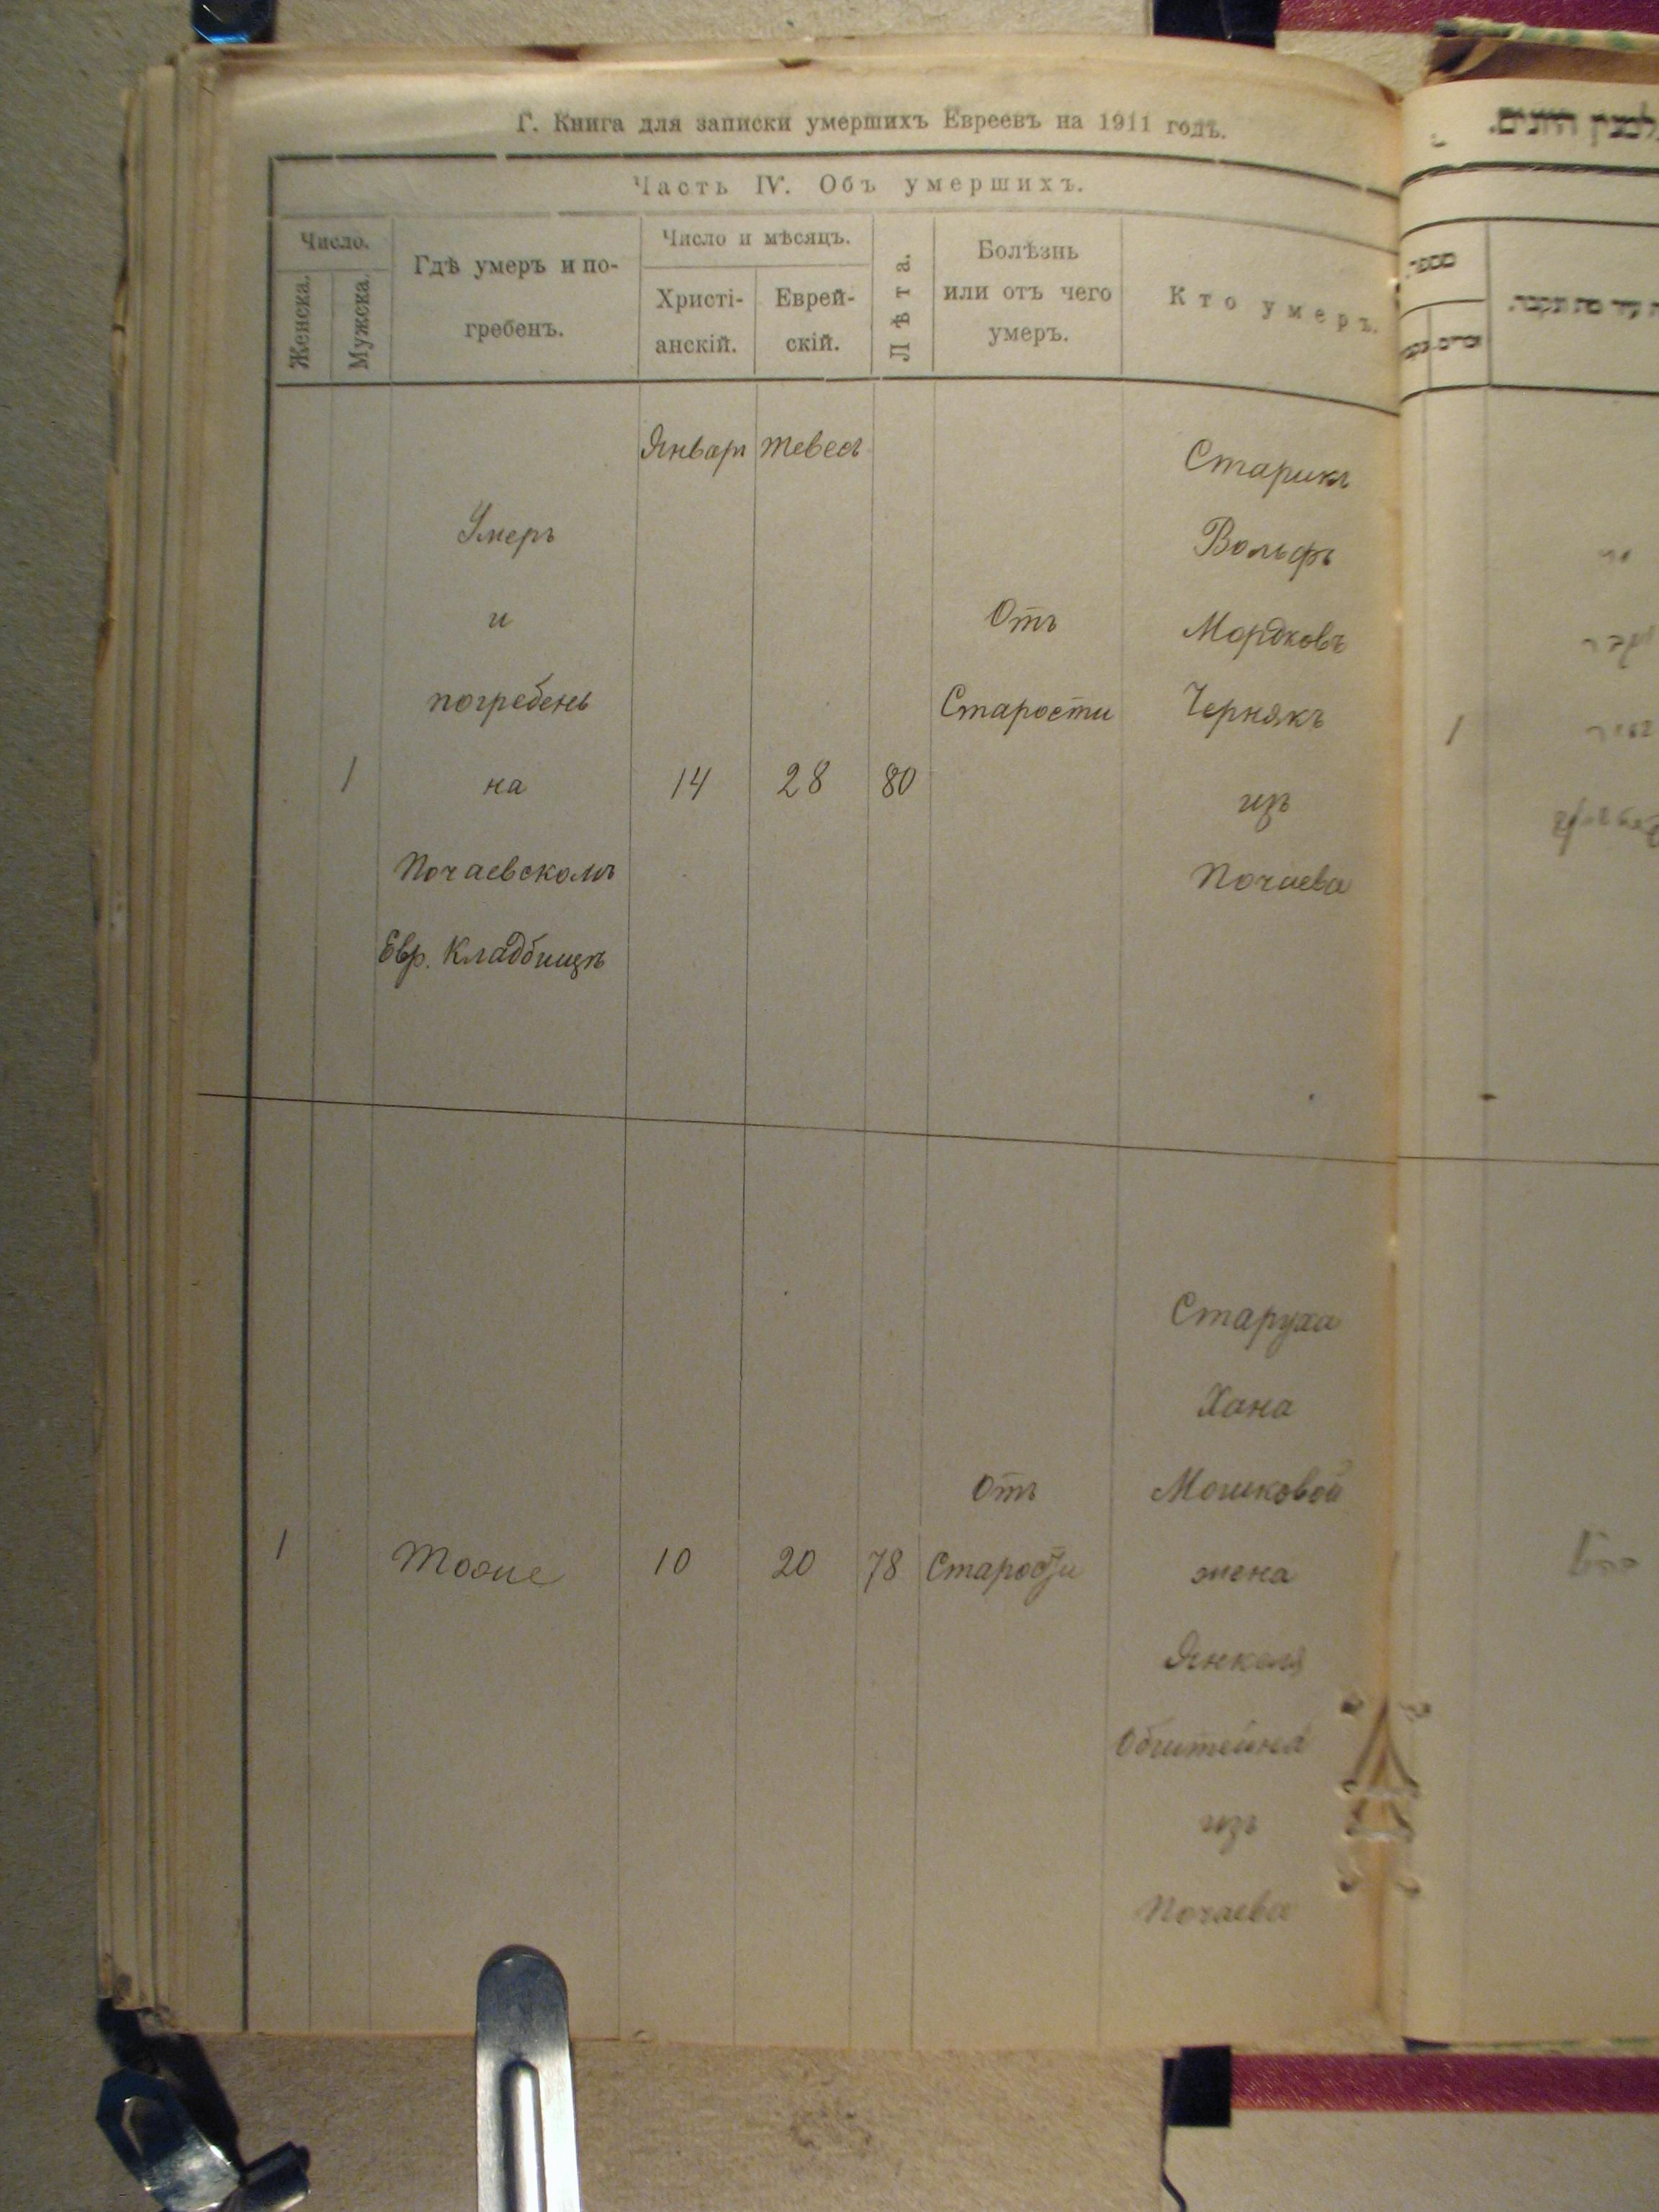 Г. Книга для записки умершихъ Евреевъ на 1911 годъ.
Часть IV. Объ умершихъ.
Число.
Женска.
Мужска.
Гдѣ умеръ и по-
гребенъ.
Число и мѣсяцъ.
Христі-
анскій.
Еврей-
скій.
Лѣта.
Болѣзнь
или отъ чего
умеръ.
Кто умеръ.
1
Умеръ
и
погребенъ
на
Почаевскомъ
Евр. Кладбищѣ
Январь
14
Тевесъ
28
80
Отъ
Старости
Старикъ
Вольфъ
Мордковъ
Чернякъ
изъ
Почаева
1
Тоже
10
20
78
Отъ
Старости
Старуха
Хана
Мошковой
жена
Янкеля
изъ
Почаева
היונים.
מספר
1